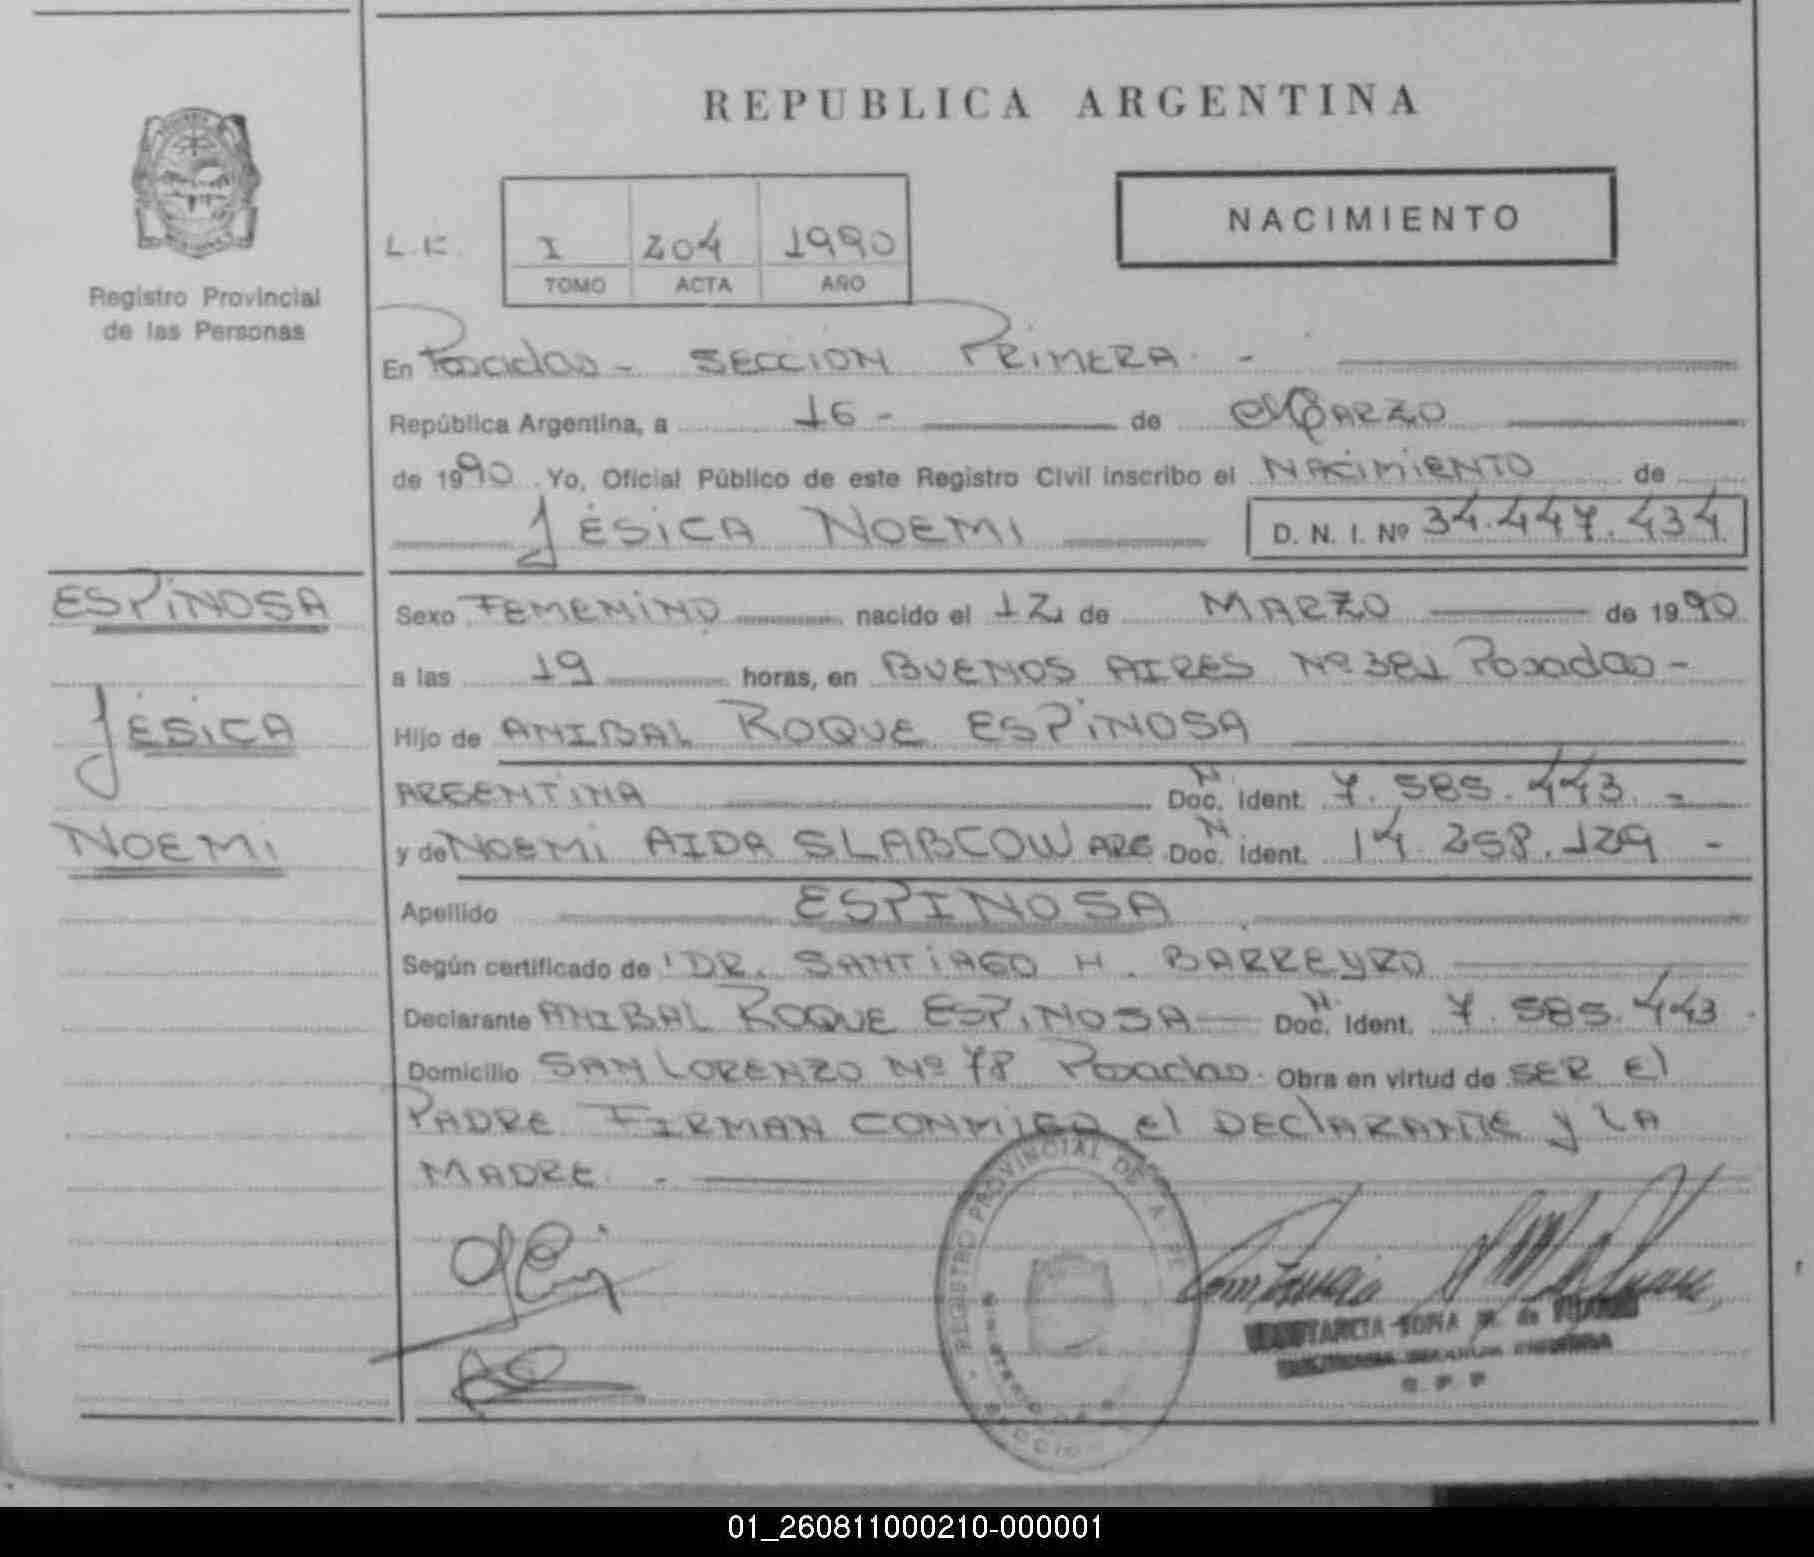 REPUBLICA ARGENTINA
NACIMIENTO
L.E. I 204 1990
TOMO ACTA AÑO
Registro Provincial
de las Personas
En Posadas - SECCION PRIMERA. -
República Argentina, a 16 - de MARZO
de 1990 Yo, Oficial Público de este Registro Civil inscribo el NACIMIENTO de
JÉSICA NOEMI D. N. I. Nº 34.447.434
ESPINOSA
JÉSICA
NOEMI
Sexo FEMENINO nacido el 12 de MARZO de 1990
a las 19 horas, en BUENOS AIRES Nº 381 Posadas -
Hijo de ANIBAL ROQUE ESPINOSA
ARGENTINA Doc. Ident. 7.585.443. -
y de NOEMI AIDA SLABCOW ARG Doc. Ident. 14.258.129 -
Apellido ESPINOSA
Según certificado de DR. SANTIAGO H. BARREYRO
Declarante ANIBAL ROQUE ESPINOSA Doc. Ident. 7.585.443.
Domicilio SAN LORENZO Nº 78 Posadas. Obra en virtud de SER El
PADRE FIRMAN CONMIGO el DEClARANTE y LA
MADRE. -
REGISTRO PROVINCIAL DE
SOFIA M. de
01_260811000210-000001